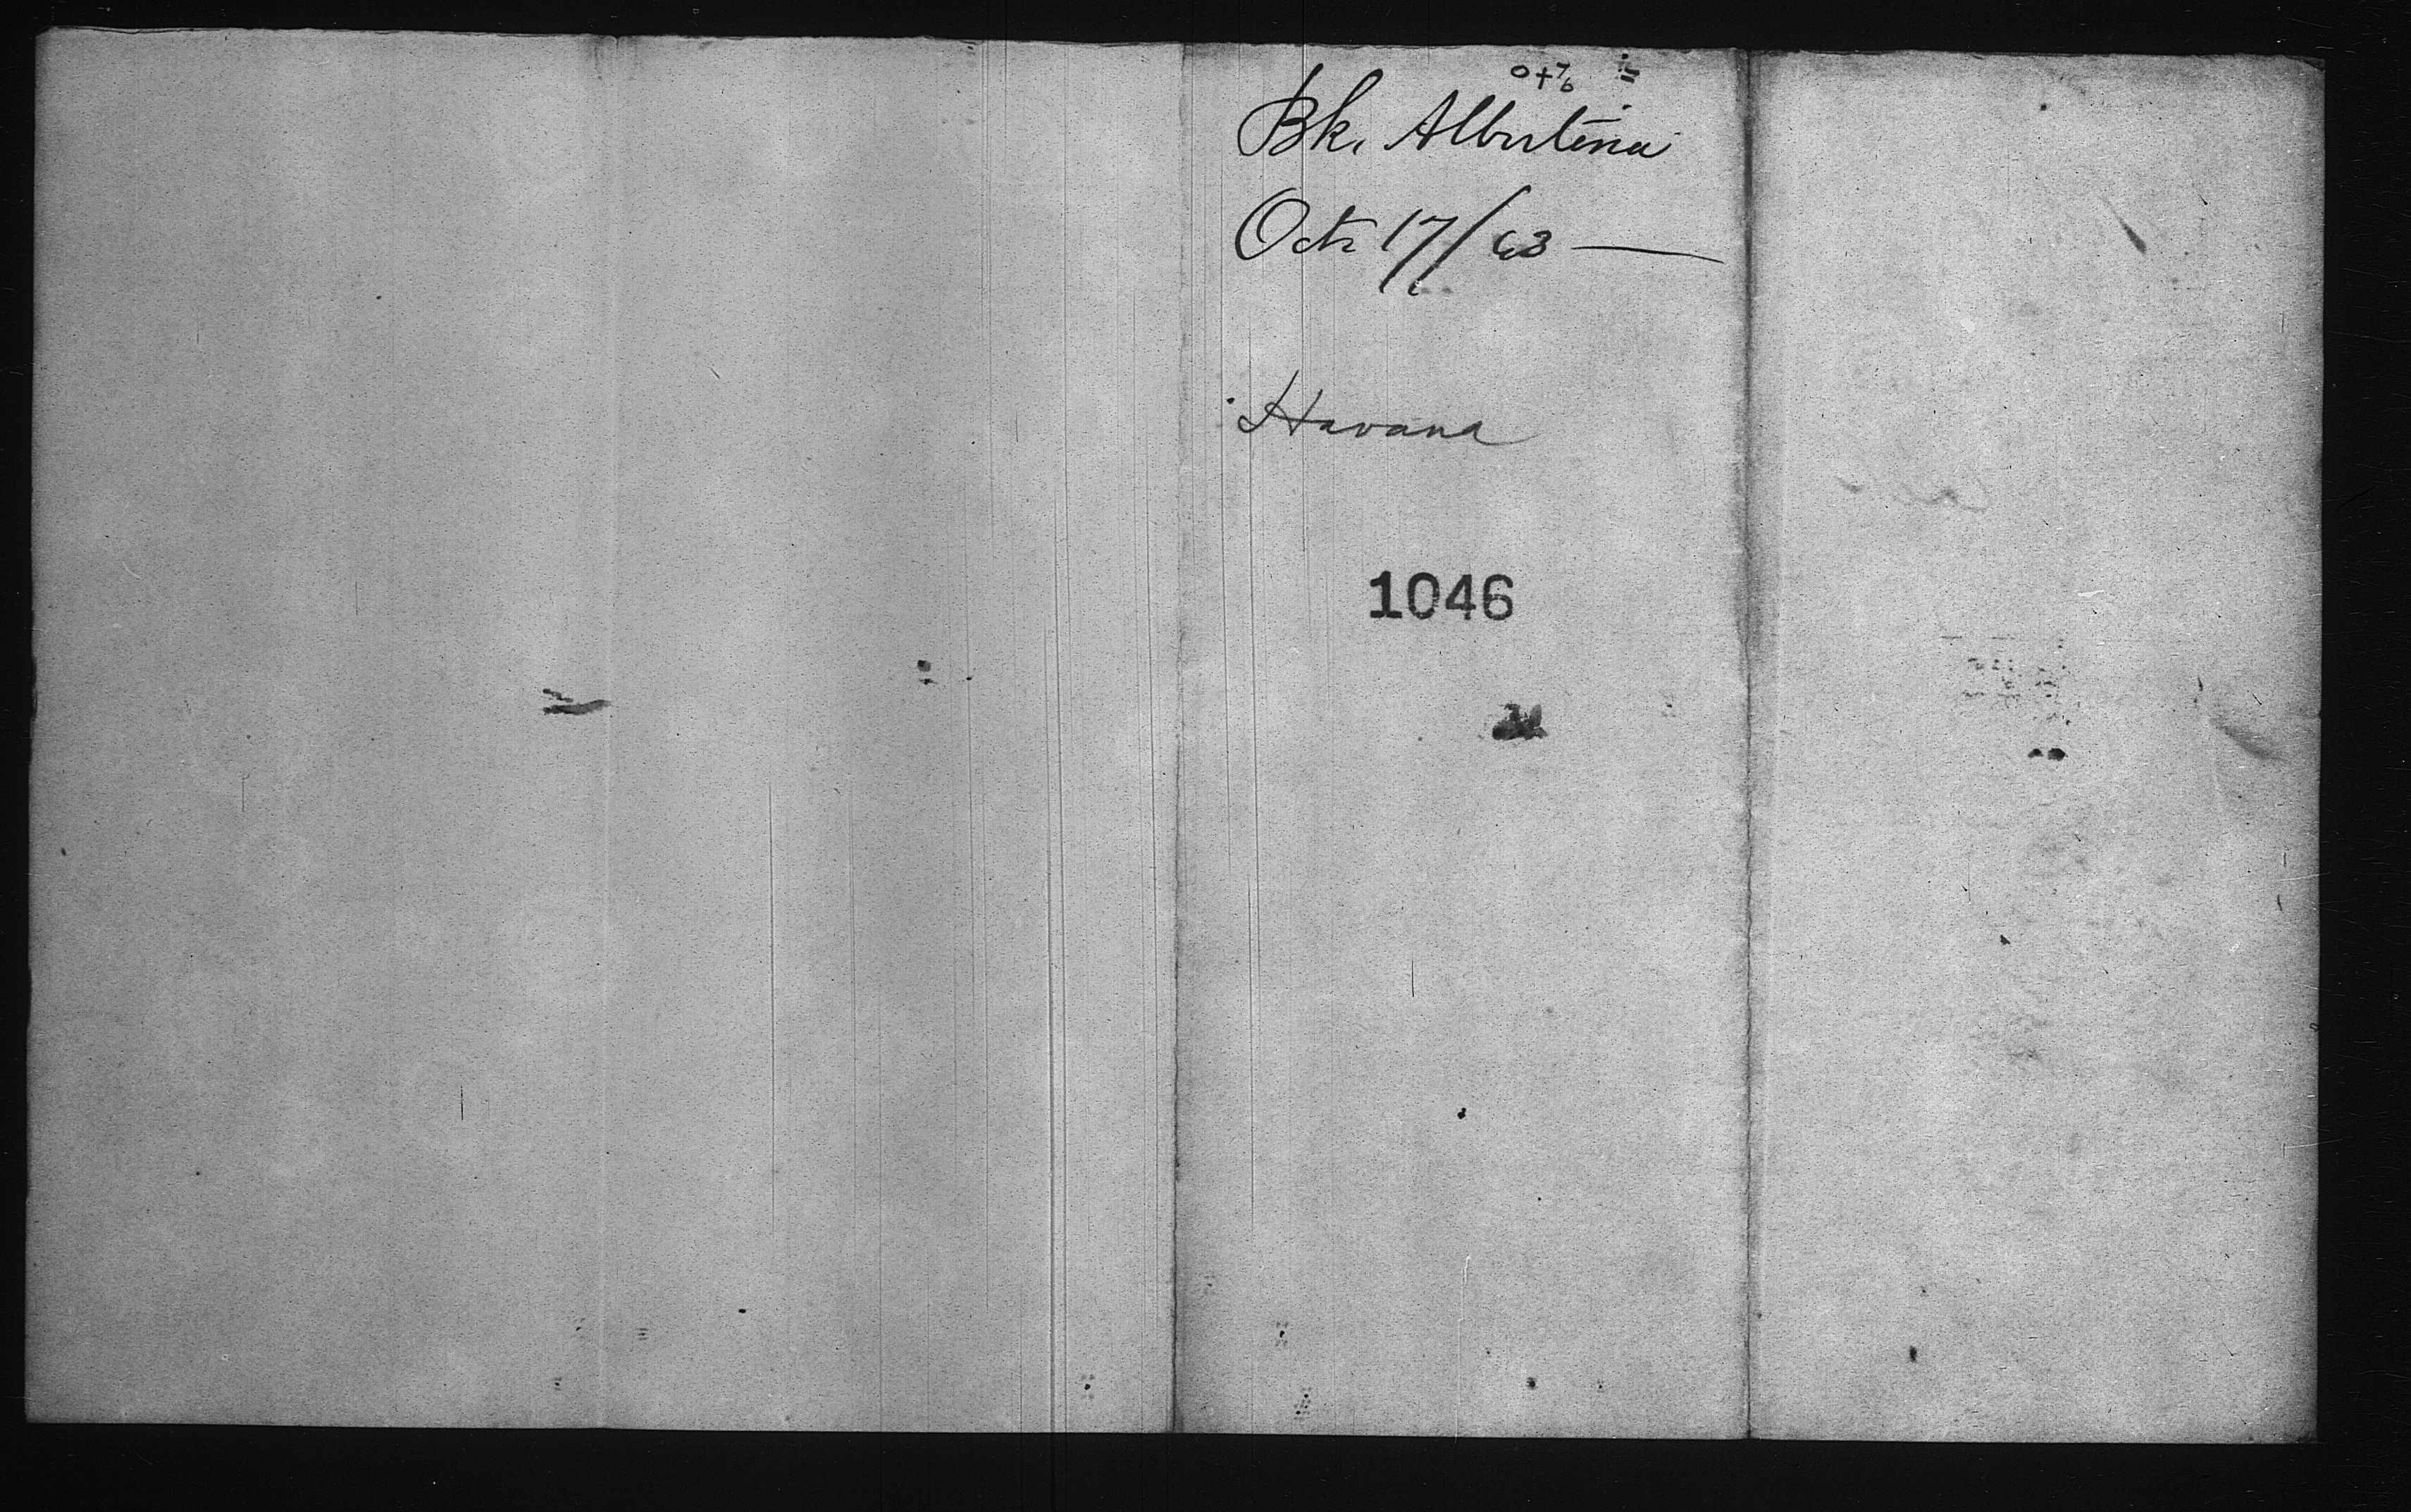 Bk. Albertina
Oct 17/63 —
Havana
1046